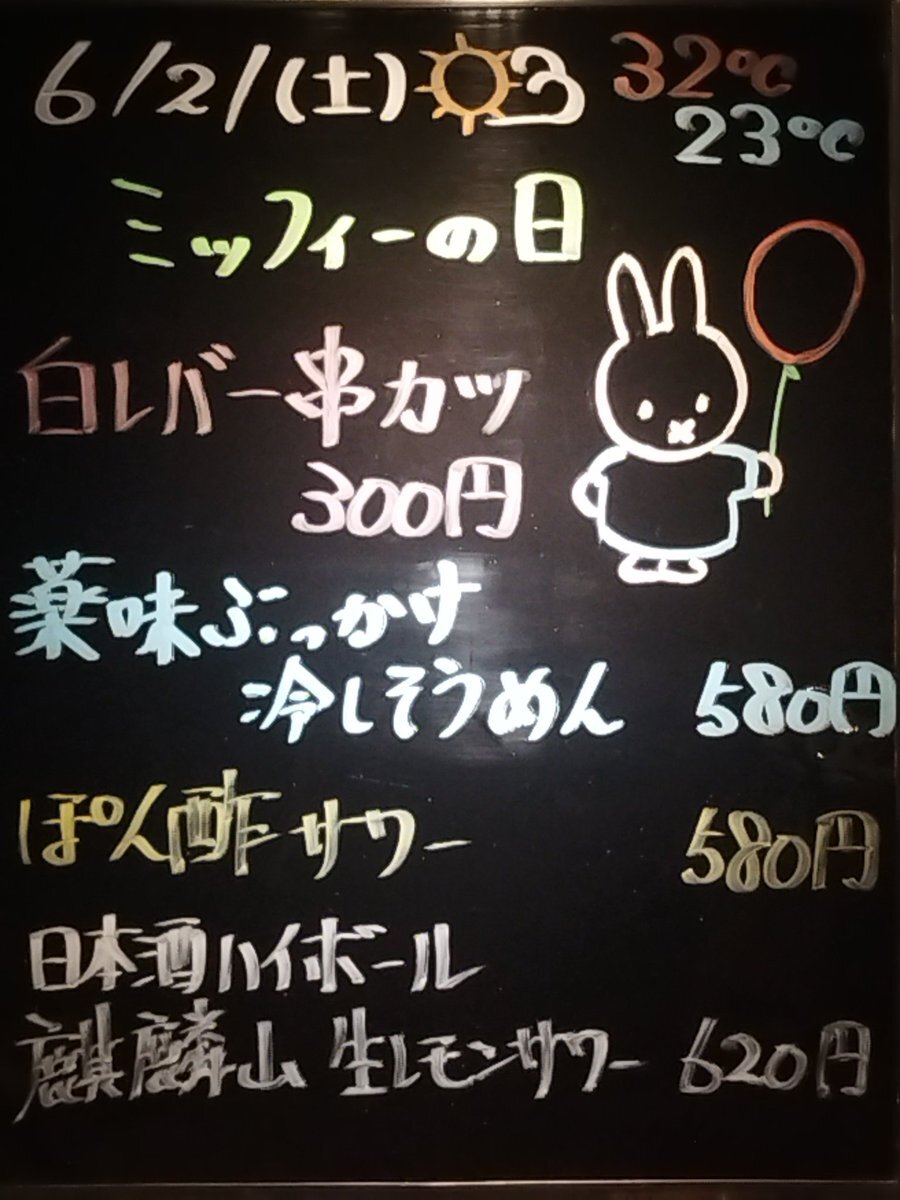 6/21(土) 32℃
23℃
ミッフィーの日
白レバー串カツ
300円
薬味ぶっかけ
冷しそうめん 580円
ぽん酢サワー 580円
日本酒ハイボール
麒麟山 生レモンサワー 620円